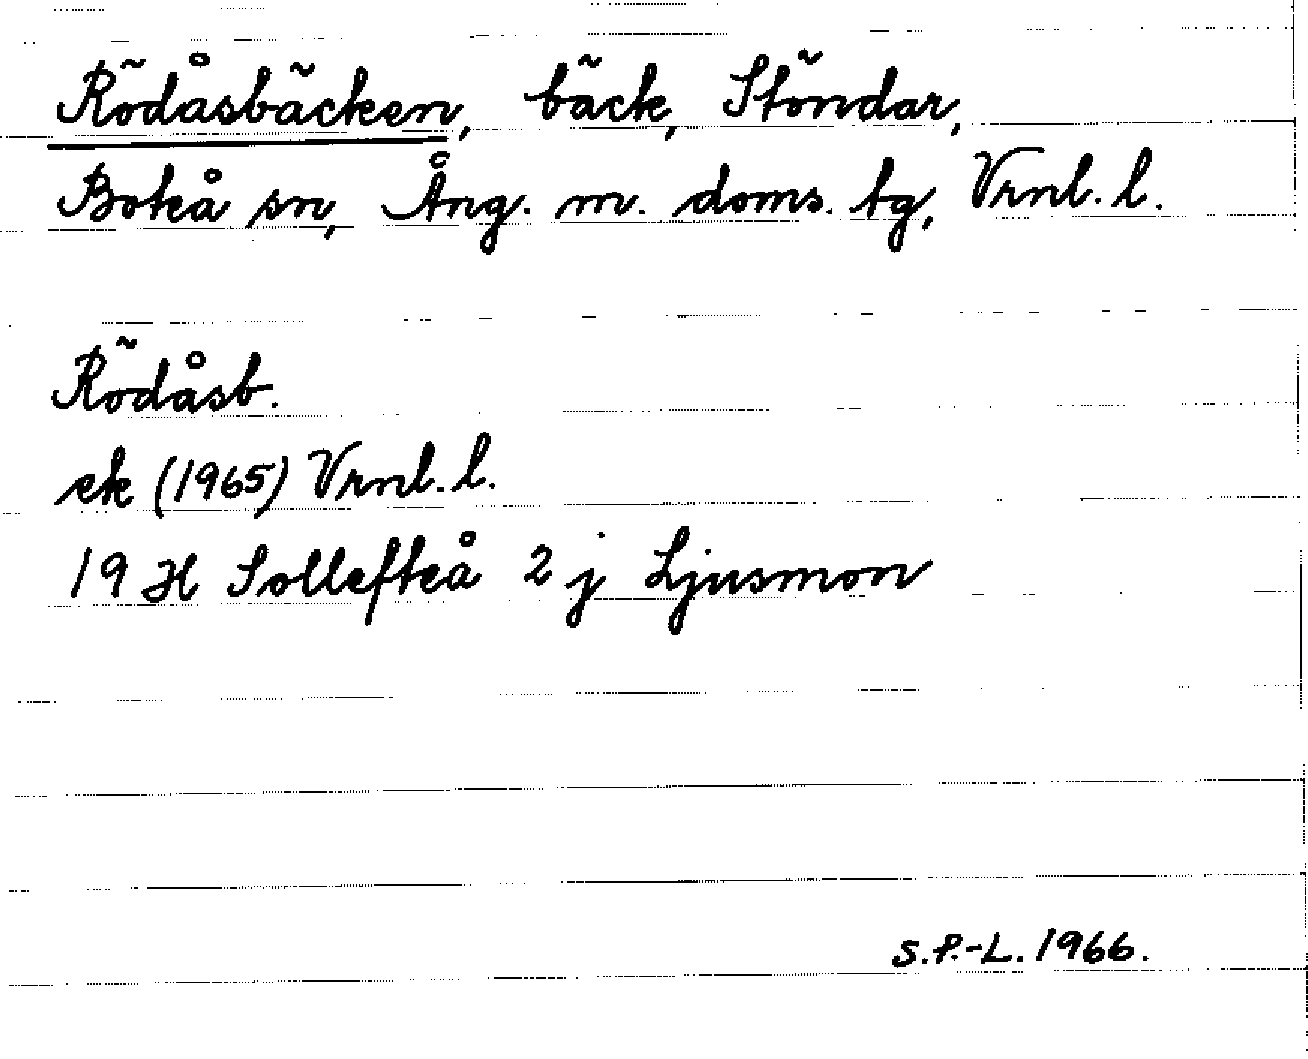 Rödåsbäcken, bäck, Stöndar,
Boteå sn, Ång. m. doms. tg, Vrnl. l.
Rödåsb.
ek (1965) Vrnl. l.
19 H Sollefteå 2 j Ljusmon
S.P.-L. 1966.